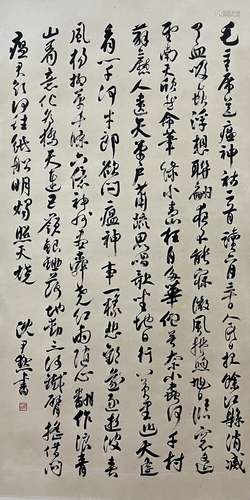 毛主席送瘟神詩二首讀六月三十日人民日报餘江縣消滅
了血吸虫浮想联翩夜不能寐微風拂煦旭日临窗遥
望南天欣然命筆綠水青山枉自多華佗無奈小虫何千村
薜荔人遺矢萬戶蕭疏鬼唱歌坐地日行八萬里巡天遥
看一千河牛郎欲问瘟神事一樣悲歡逐逝波春
風楊柳萬千條六億神州盡舜堯紅雨隨心翻作浪青
山着意化為橋天連五嶺銀鋤落地動三河鐵臂搖借问
瘟君欲何往紙船明燭照天燒
沈尹默書